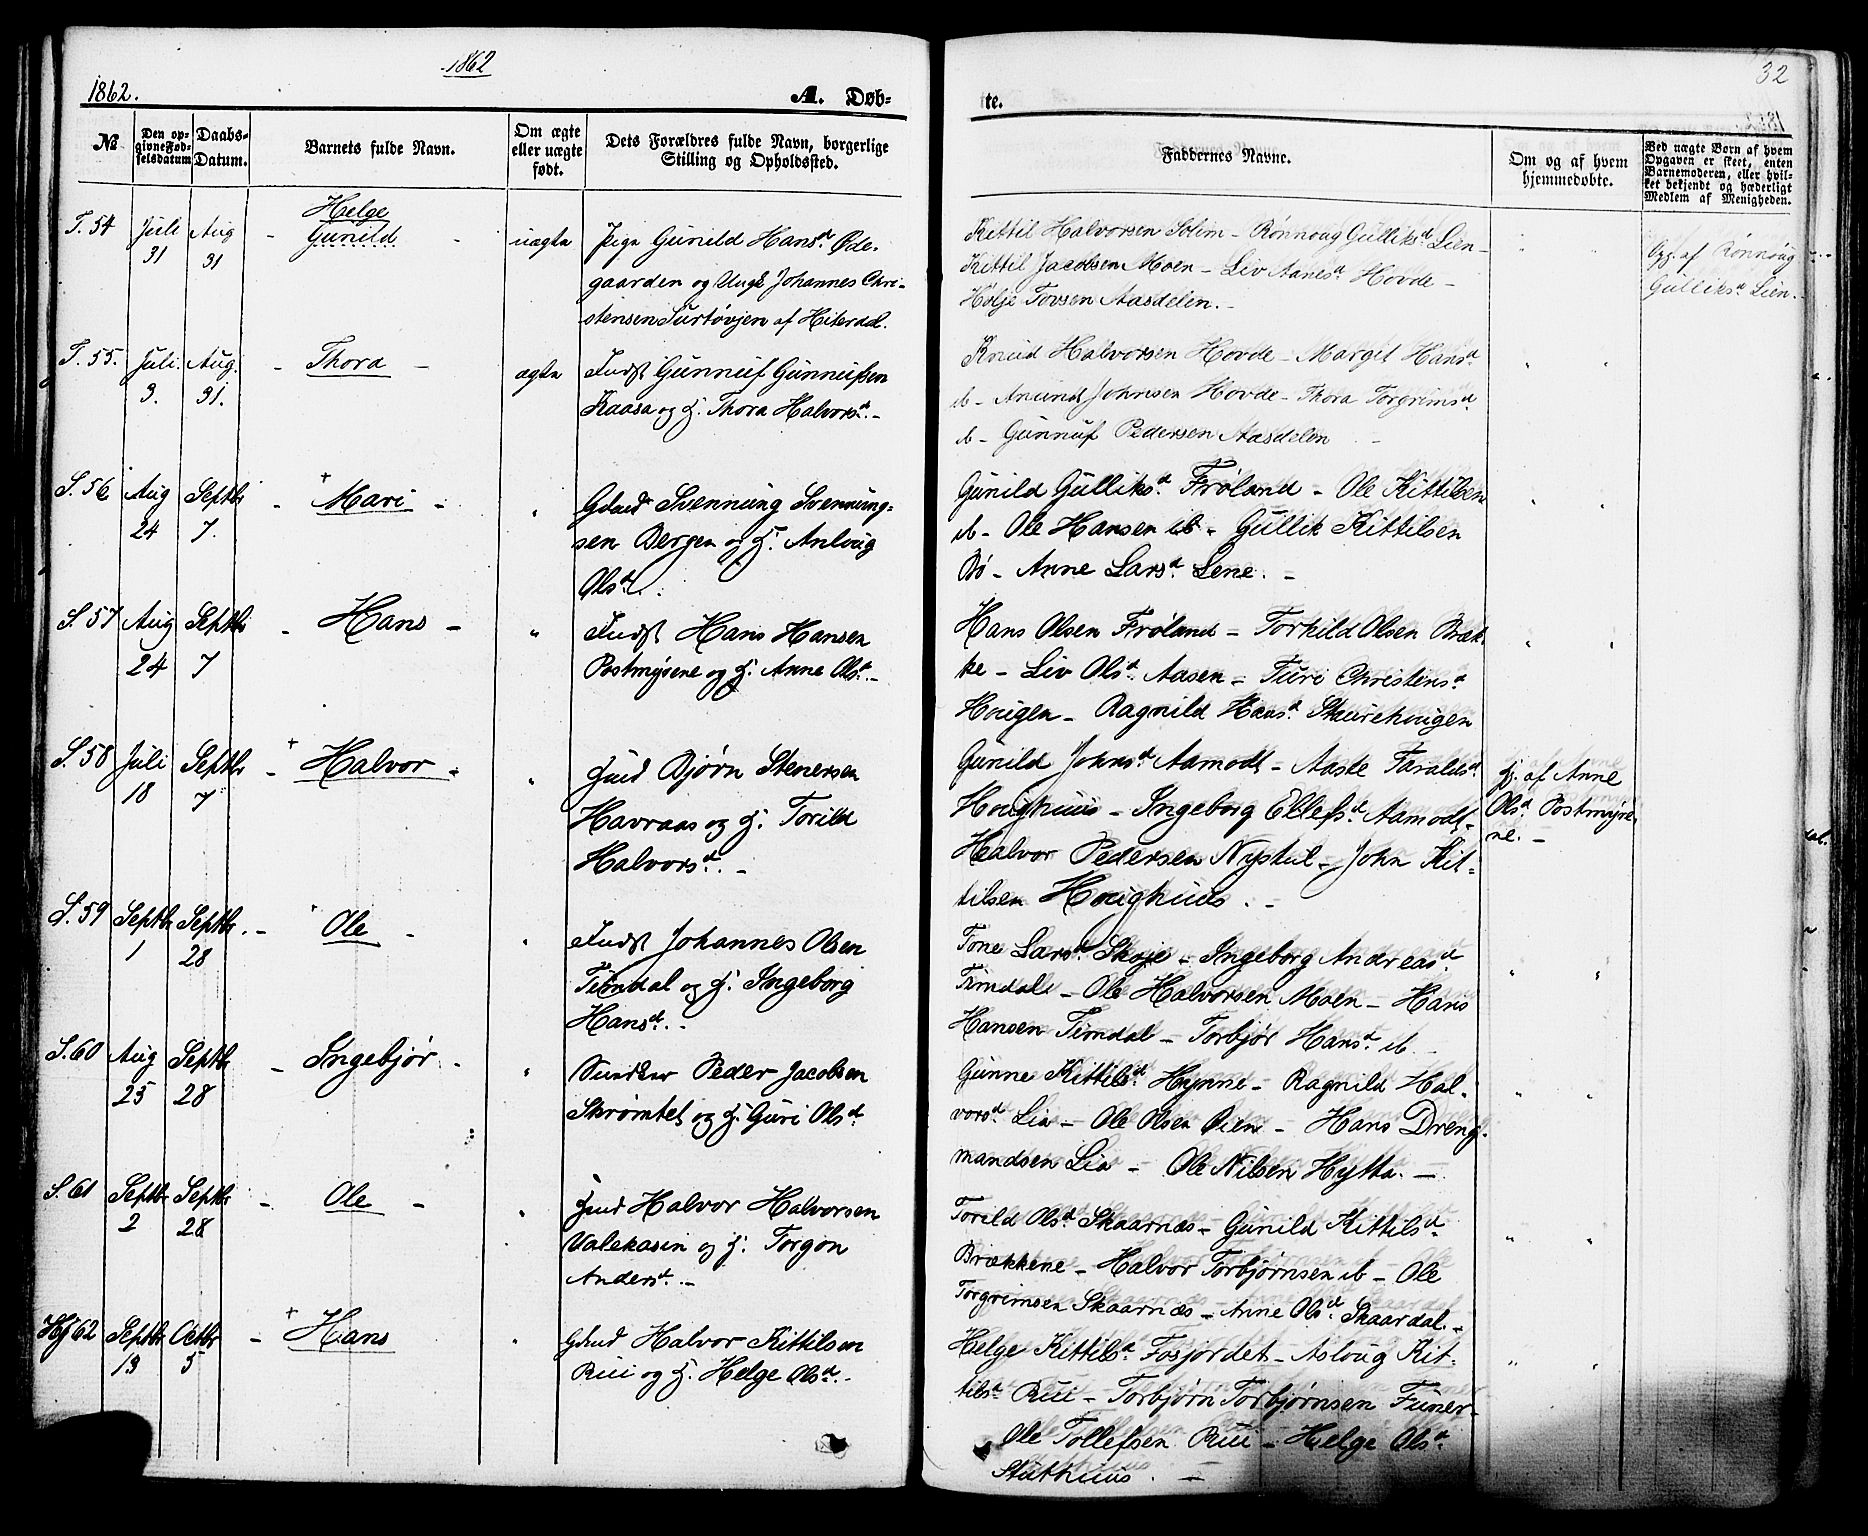 1862
1862.
A. Døb-
№
Den op-
givne Fød-
selsdatum
Daabs-
Datum.
Barnets fulde Navn.
Om ægte
eller uægte
født.
Dets Forældres fulde Navn, borgerlige
Stilling og Opholdssted.
T. 54
Juli
31
Aug
31
Helge
Gunild
uægte
Pige Gunild Hansd. Øde-
gaarden og Ungk Johannes Chri-
stensen Surtøvjen af Hiterdal.
T. 55.
Juli.
3.
Aug.
31.
Thora
ægte
Indst Gunnuf Gunnufsen
Kaasa og H. Thora Halvorsd. -
S. 56
Aug
24
Septbr
7.
+
Mari
"
Gdmd Svennung Svennung=
sen Bergen og H. Anloug
Olsd.
S. 57
Aug
24
Septbr
7
Hans
"
Indst Hans Hansen
Postmyrene og H. Anne Olsd. -
S. 58
Juli
18
Septbr
7
+
Halvor
"
Hmd Bjørn Stenersen
Havraas og H. Torild
Halvorsd. -
S. 59
Septbr
1
Septbr.
28
Ole
"
Indst Johannes Olsen
Timdal og H. Ingeborg
Hansd. -
S. 60
Aug
25
Septbr
28
Ingebjør
"
Snedker Peder Jacobsen
Skrømtet og H. Guri Olsd
S. 61
Septbr
2
Septbr
28
Ole
"
Hmd Halvor Halvorsen
Valekasin og H. Torgon
Andersd. -
Hj 62
Septbr
13
Octbr
5
+
Hans
"
Gdmd Halvor Kittilsen
Rui og H. Helge Olsd. -
32
te.
Faddernes Navne.
Om og af hvem
hjemmedøbte.
Ved uægte Børn af hvem
Opgaven er skeet, enten
Barnemoderen, eller hvil-
ket bekjendt og hæderligt
Medlem af Menigheden.
Kittil Halvorsen Solim - Rønnoug Gulliksd. Lien -
Kittil Jacobsen Moen - Liv Aanesd. Hovde -
Holje Tovsen Aasdelen. -
Opg. af Rønnoug
Gulliksd. Lien.
Knud Halvorsen Hovde - Margit Hansd
ib - Anund Johnsen Hovde - Thora Torgrimsd.
ib - Gunnuf Pedersen Aasdelen -
Gunild Gulliksd. Frøland - Ole Kittilsen
ib - Ole Hansen ib - Gullik Kittilsen
Bø - Anne Larsd. Lene. -
Hans Olsen Frøland - Torkild Olsen Bræk-
ke - Liv Olsd. Aasen - Turi Christensd.
Hougen - Ragnild Hansd. Staurehougen
Gunild Johnsd. Aamodt - Aaste Taraldsd.
Houghuus - Ingeborg Ellefsd. Aamodt -
Halvor Pedersen Nystul - John Kit-
tilsen Houghuus. -
Hj. af Anne
Olsd. Postmyre-
ne. -
Tone Larsd. Skoje - Ingeborg Andreasd.
Timdale - Ole Halvorsen Moen - Hans
Hansen Timdal - Torbjør Hansd. ib -
Gunne Kittilsd. Hynne - Ragnild Hal-
vorsd. Lia - Ole Olsen Øien - Hans Dreng-
mandsen Lia - Ole Nilsen Hytta. -
Torild Olsd. Skaarnæs - Gunild Kittilsd.
Brækkene - Halvor Torbjørnsen ib - Ole
Torgrimsen Skaarnæs - Anne Olsd. Skaardal. -
Helge Kittilsd. Fosjordet - Asloug Kit-
tilsd. Rui - Torbjørn Torbjørnsen Funer-
Ole Tollefsen Rui - Helge Olsd.
Stuthuus. -